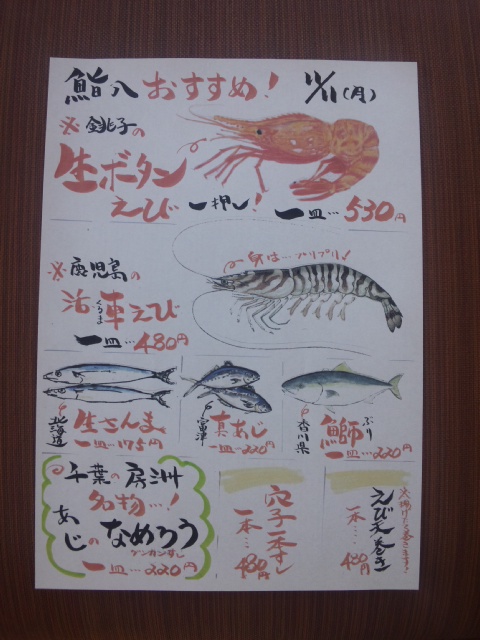 鮨八 おすすめ! 11/11(月)
※銚子の
生ボタン
えび 一押し! 一皿…530円
身は…プリプリ
※鹿児島の
活車えび
くるま
一皿…480円
北海道
生さんま
一皿…175円
富津
真あじ
一皿…220円
香川県
鰤
ぶり
一皿…220円
千葉の房洲
名物…!
あじのなめろう
グンカンずし
一皿…220円
穴子一本すし
一本…
480円
えび天巻き
一本…
480円